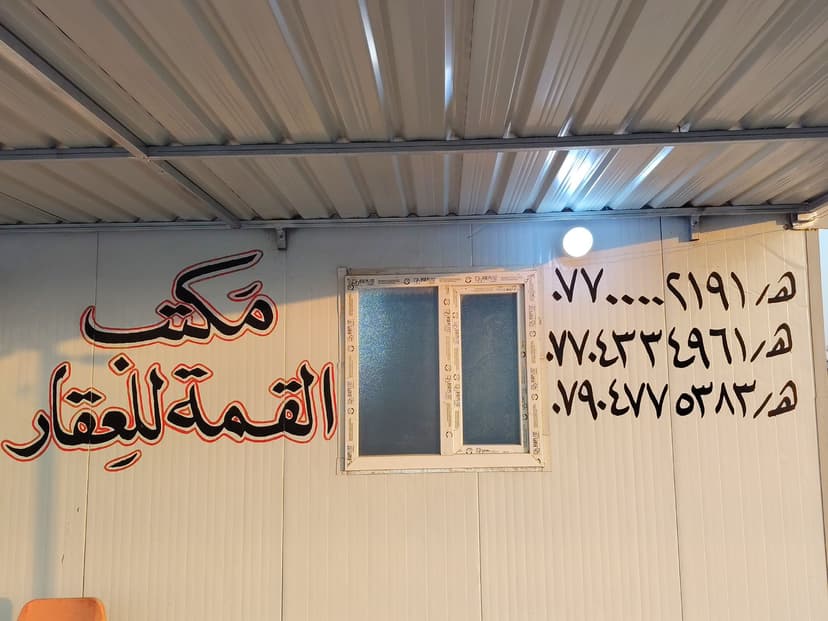 مكتب
القمة للعقار
هـ/ ٠٧٧٠٠٠٠٢١٩١
هـ/ ٠٧٧٠٤٣٣٤٩٦١
هـ/ ٠٧٩٠٤٧٧٥٣٨٣